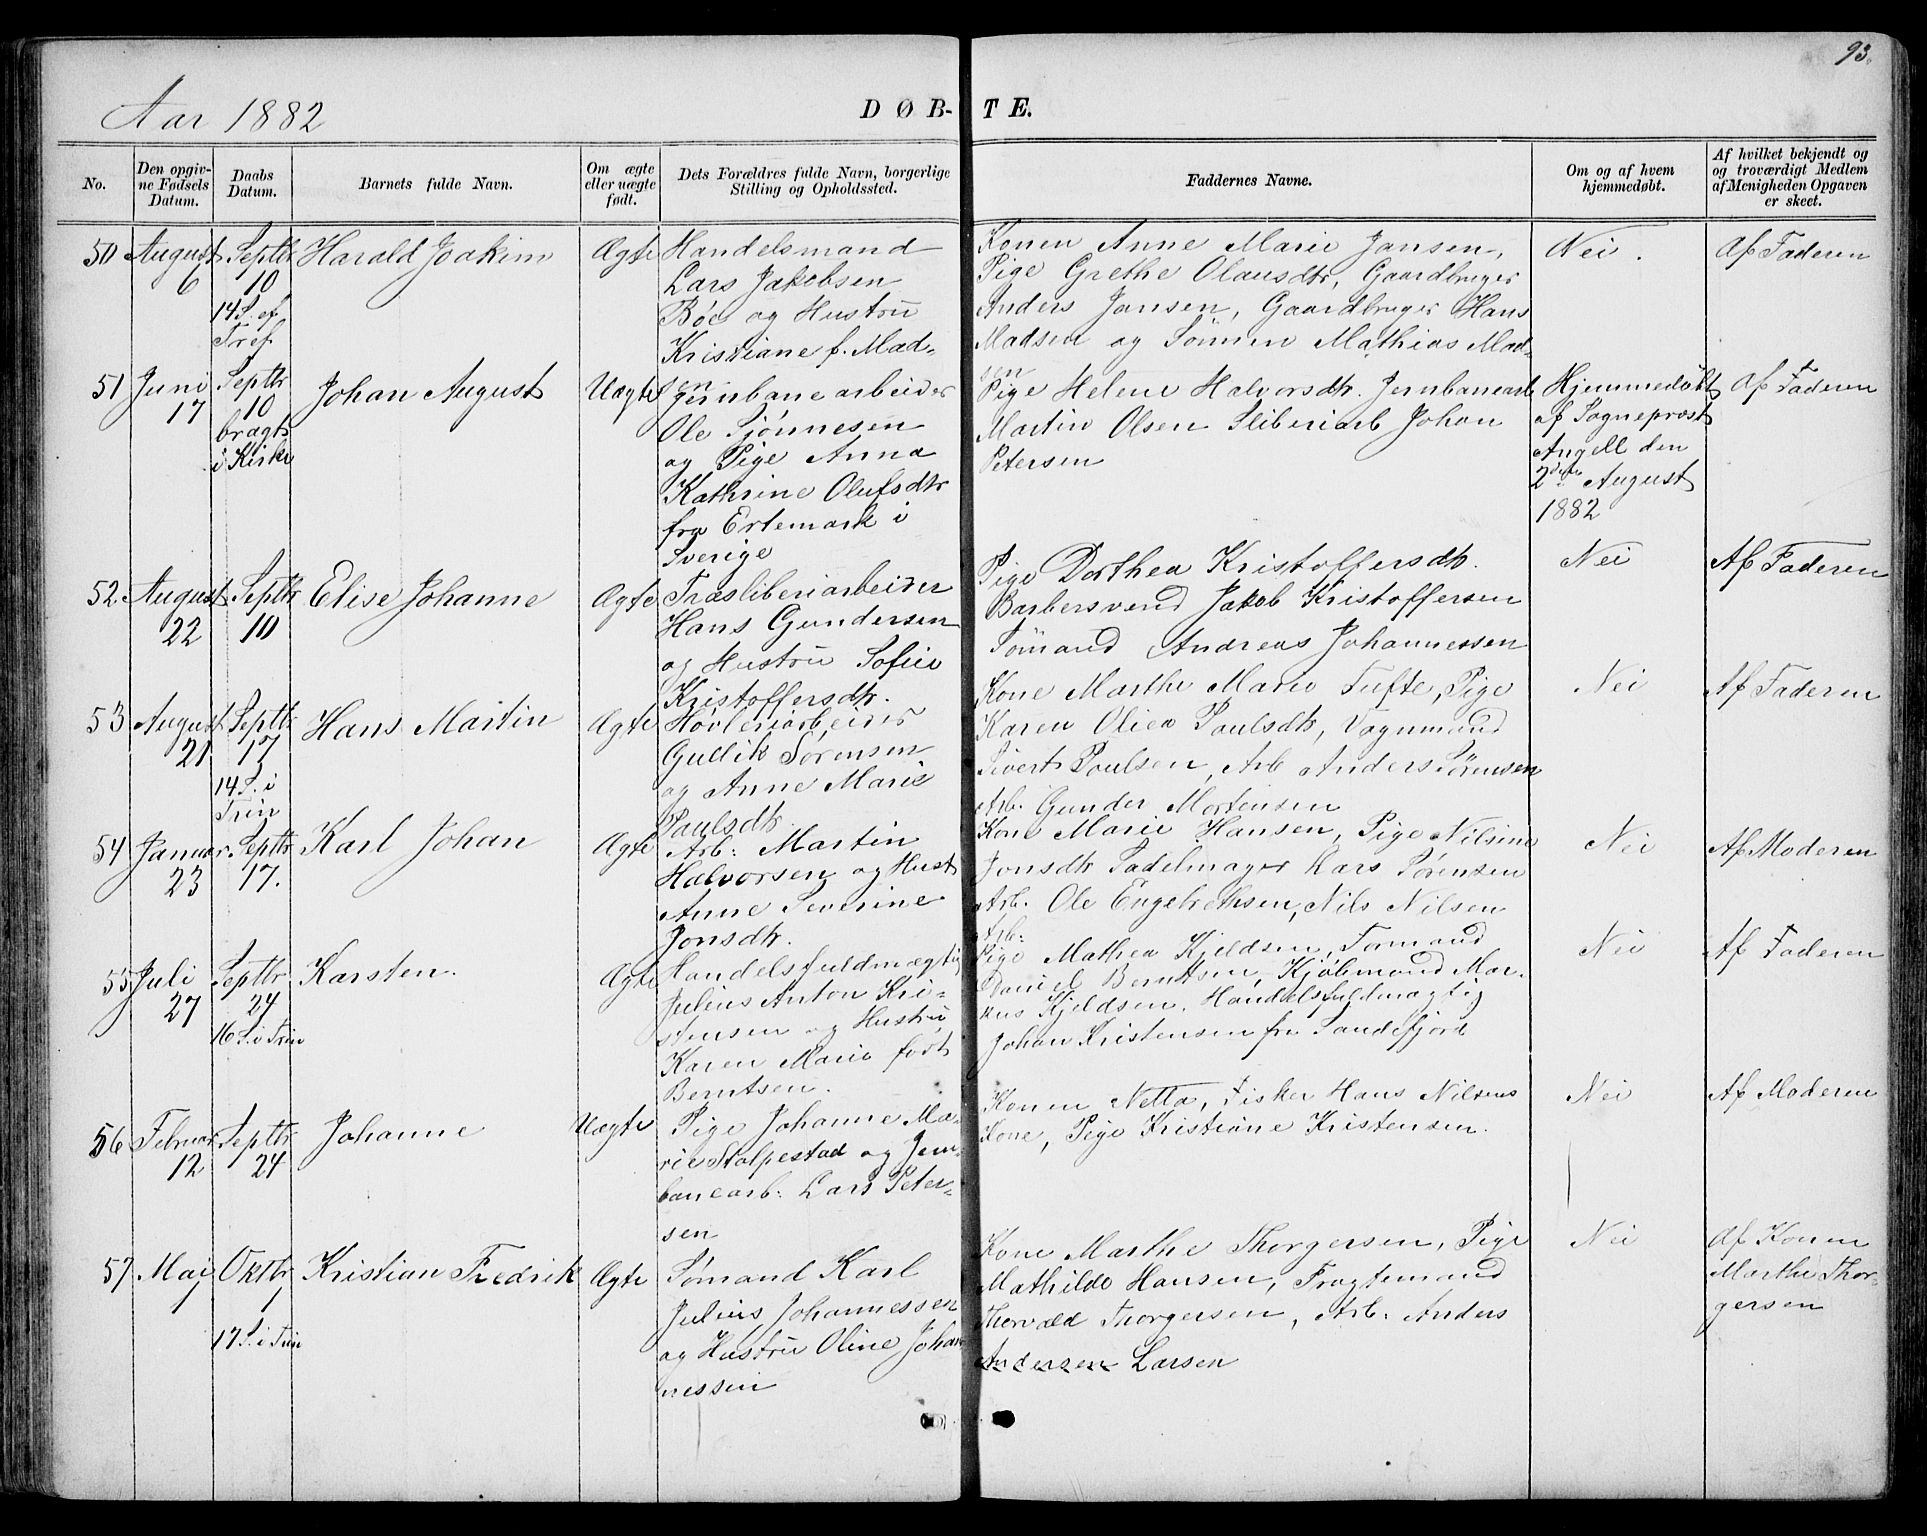 93.
Aar 1882
DØB-TE.
No.
Den opgiv-
ne Fødsels
Datum.
Daabs
Datum.
Barnets fulde Navn.
Om ægte
eller uægte
født.
Dets Forældres fulde Navn, borgerlige
Stilling og Opholdssted.
Faddernes Navne.
Om og af hvem
hjemmedøbt.
Af hvilket bekjendt og
og troværdigt Medlem
af Menigheden Opgaven
er skeet.
50
August
6
Septbr
10
14 S. ef
Tref
Harald Joakim
Ægte
Handelsmand
Lars Jakobsen
Bøe og Hustru
Kristiane f. Mad-
sen
Konen Anne Marie Jansen,
Pige Grethe Olausdtr, Gaardbruger
Anders Jansen, Gaardbruger Hans
Madsen og Sønnen Mathias Mad-
sen
Nei.
Af Faderen
51
Juni
17
Septbr
10
bragt
i Kirke
Johan August
Uægte
Jernbanearbeider
Ole Sjønnesen
og Pige Anna
Kathrine Olufsdtr
fra Ertemark i
Sverige
Pige Helene Halvorsdtr. Jernbanearb
Martin Olsen Sliberiarb Johan
Petersen
Hjemmedøbt
af Sogneprest
Angell den
2den August
1882
Af Faderen
52
August
22
Septbr
10
Elise Johanne
Ægte
Træsliberiarbeider
Hans Gundersen
og Hustru Sofie
Kristoffersdtr.
Pige Dorthea Kristoffersdtr.
Barbersvend Jakob Kristoffersen
Sømand Andreas Johannessen
Nei
Af Faderen
53
August
21
Septbr
17
14 S. i
Trin
Hans Martin
Ægte
Høvleriarbeider
Gullik Sørensen
og Anne Marie
Paulsdtr
Kone Marthe Marie Tufte, Pige
Karen Oliea Paulsdtr, Vognmand
Sivert Poulsen, Arb Anders Sørensen
Arb. Gunder Mortensen
Nei
Af Faderen
54
Januar
23
Septbr
17.
Karl Johan
Ægte
Arb: Martin
Halvorsen og Hust
Anne Severine
Jonsdtr.
Kone Marie Hansen, Pige Nilsine
Jonsdtr Sadelmager Lars Sørensen
Arb. Ole Engebrethsen, Nils Nilsen
Arb.
Nei
Af Moderen
55
Juli
27
Septbr
24
16 S. i Trin
Karsten.
Ægte
Handelsfuldmægtig
Julius Anton Kri-
stensen og Hustru
Karen Marie født
Berntsen.
Pige Mathea Kjeldsen, Formand
Daniel Berntsen, Kjøbmand Mar-
kus Kjeldsen, Handelsfuldmægtig
Johan Kristensen fra Sandefjord
Nei
Af Faderen
56
Februar
12
Septbr
24
Johanne
Uægte
Pige Johanne Ma-
rie Stolpestad og Jern-
banearb: Lars Peter-
sen
Konen Netta, Fisker Hans Nilsens
Kone, Pige Kristiane Kristensen.
Nei
Af Moderen
57
Mai
1
Oktbr
1
17 S. i Trin
Kristian Fredrik
Ægte
Sømand Karl
Julius Johannessen
og Hustru Oline Johan
nessen
Kone Marthe Thorgersen, Pige
Mathilde Hansen, Fragtemand
Thorvald Thorgersen, Arb. Anders
Andersen Larsen
Nei
Af Konen
Marthe Thor-
gersen